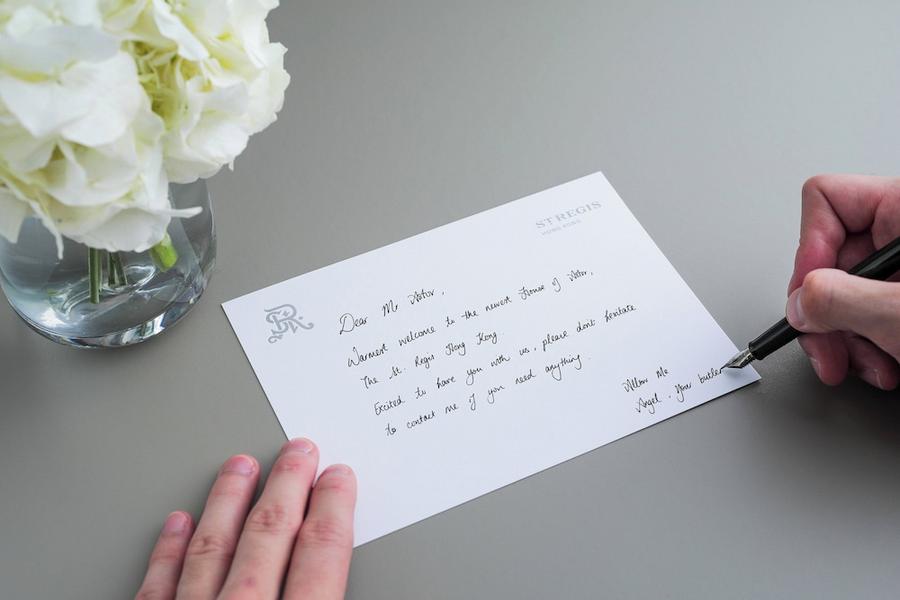 ST REGIS
HONG KONG
Dear Mr Astor,
Warmest welcome to the newest House of Astor,
The St. Regis Hong Kong.
Excited to have you with us, please don't hesitate
to contact me if you need anything.
Allow Me
Angel. Your butler